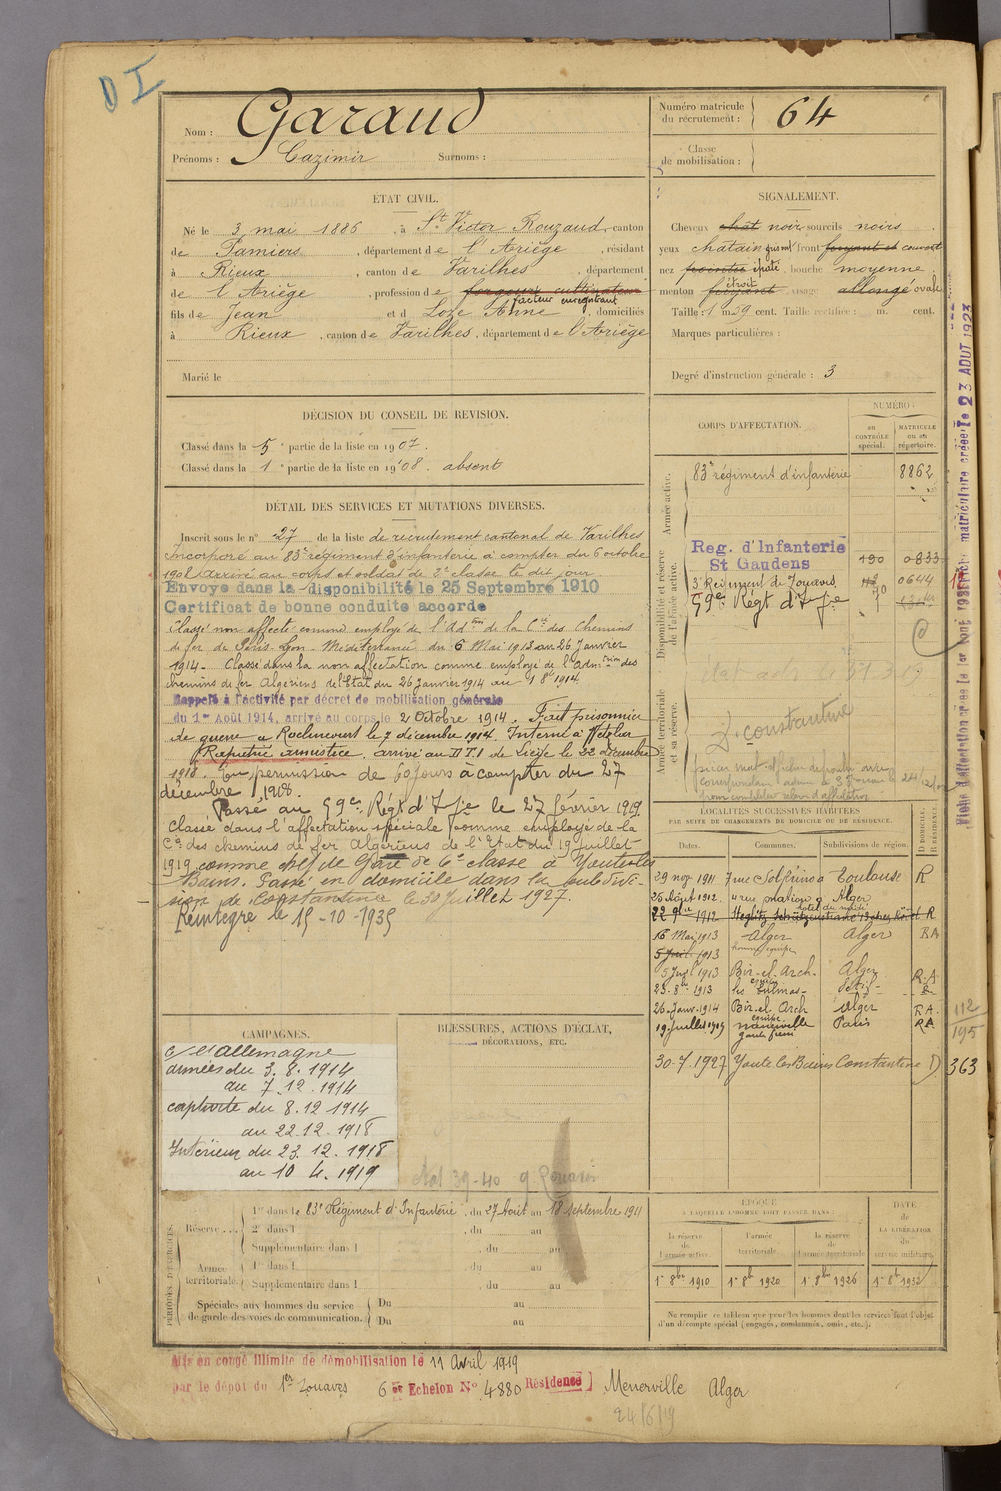 D I
Nom : Garaud
Prénoms : Cazimir Surnoms :
Numéro matricule
du recrutement : 64
Classe
de mobilisation :
ÉTAT CIVIL.
Né le 3 mai 1886, à St Victor Rouzaud, canton
de Pamiers, département de l'Ariège, résidant
à Rieux, canton de Varilhes, département
de l'Ariège, profession de forgeron cultivateur
facteur enregistrant
fils de Jean et d Loze Anne, domiciliés
à Rieux, canton de Varilhes, département de l'Ariège
Marié le
SIGNALEMENT.
Cheveux chat noir sourcils noirs
yeux chatain front fuyant et couvert
nez épaté, bouche moyenne
étroit
menton fuyant, visage allongé ovale
Taille : 1 m 59 cent. Taille rectifiée : m. cent.
Marques particulières :
Degré d'instruction générale : 3
DÉCISION DU CONSEIL DE REVISION.
Classé dans la 5e partie de la liste en 1907.
Classé dans la 1e partie de la liste en 1908. absent
DÉTAIL DES SERVICES ET MUTATIONS DIVERSES.
Inscrit sous le n° 27 de la liste de recrutement cantonal de Varilhes
Incorporé au 83e régiment d'infanterie à compter du 6 octobre
1908 Arrivé au corps et soldat de 2e classe le dit jour
Envoyé dans la disponibilité le 25 Septembre 1910
Certificat de bonne conduite accordé
Classé non affecté comme employé de l'Adtion de la Cie des Chemins
de fer de Paris-Lyon-Méditerranée du 6 Mai 1913 au 26 Janvier
1914 - Classé dans la non affectation comme employé de l'Admion des
chemins de fer Algériens de l'Etat du 26 janvier 1914 au 1 8 1914
Rappelé à l'activité par décret de mobilisation générale
du 1er Août 1914, arrivé au corps le 2 Octobre 1914. Fait prisonnier
de guerre à Roclincourt le 7 décembre 1914. Interné à Wetzlar
Rapatrié armistice, arrivé au D.T.I de Liège le 22 décembre
1918. En permission de 60 jours à compter du 27
décembre 1918.
Passé au 59e Régt d'Ifie le 27 février 1919
Classé dans l'affectation spéciale comme employé de la
Cie des chemins de fer Algériens de l'Etat du 19 juillet
1919 comme chef de Gare de 6e classe à Youks-les
Bains. Passé en domicile dans la subdivi-
sion de Constantine le 30 juillet 1927.
Réintégré le 15-10-1935
CORPS D'AFFECTATION.
NUMÉRO :
au CONTRÔLE spécial.
MATRICULE ou au répertoire.
Armée active.
83e régiment d'infanterie 8862
Disponibilité et réserve de l'armée active.
Reg. d'Infanterie
St Gaudens 190 0833
3e Régiment de Zouaves 0644
59e Régt d'Ifie
Armée territoriale et sa réserve.
D. Constantine
LOCALITÉS SUCCESSIVES HABITÉES
PAR SUITE DE CHANGEMENTS DE DOMICILE OU DE RÉSIDENCE.
Dates. Communes. Subdivisions de région. D DOMICILE. R RÉSIDENCE.
29 nov 1911 7 rue Solférino à Toulouse R
26 Août 1912. 4 rue Alger
hotel du midi
22 9bre 1912 R
16 Mai 1913 Alger Alger RA
homme équipe
5 1913
5 1913 Bir-el-Arch. Alger R.A
23-8-1913 les Eulmas - Sétif - R
26 Janv. 1914 Bir-el Arch Alger RA
équipe
19 Juillet 1919 Paris RA
112
195
30-7-1927 Youks les Bains Constantine D 363
CAMPAGNES.
c/ l'allemagne
armées du 3. 8. 1914
au 7. 12. 1914
captivité du 8. 12 1914
au 22. 12. 1918
Intérieur du 23. 12. 1918
au 10 4. 1919
BLESSURES, ACTIONS D'ÉCLAT,
DÉCORATIONS, ETC.
PÉRIODES D'EXERCICES.
Réserve... 1re dans le 83e Régiment d'Infanterie, du 27 Août au 18 septembre 1911
2e dans l , du au
Supplémentaire dans l , du au
Armée territoriale. 1re dans l , du au
Supplémentaire dans l , du au
Spéciales aux hommes du service
de garde des voies de communication. Du au
Du au
ÉPOQUE
À LAQUELLE L'HOMME DOIT PASSER DANS :
la réserve de l'armée active. l'armée territoriale. la réserve de l'armée territoriale.
DATE DE LA LIBÉRATION du service militaire.
1er 8bre 1910 1er 8bre 1920 1er 8bre 1926 1er 8bre 1932
Ne remplir ce tableau que pour les hommes dont les services font l'objet
d'un décompte spécial (engagés, condamnés, omis, etc.).
Mis en congé illimité de démobilisation le 11 Avril 1919
par le dépôt du 1er Zouaves 6e Echelon N° 4880 Résidence ] Menerville Alger
24/6/19